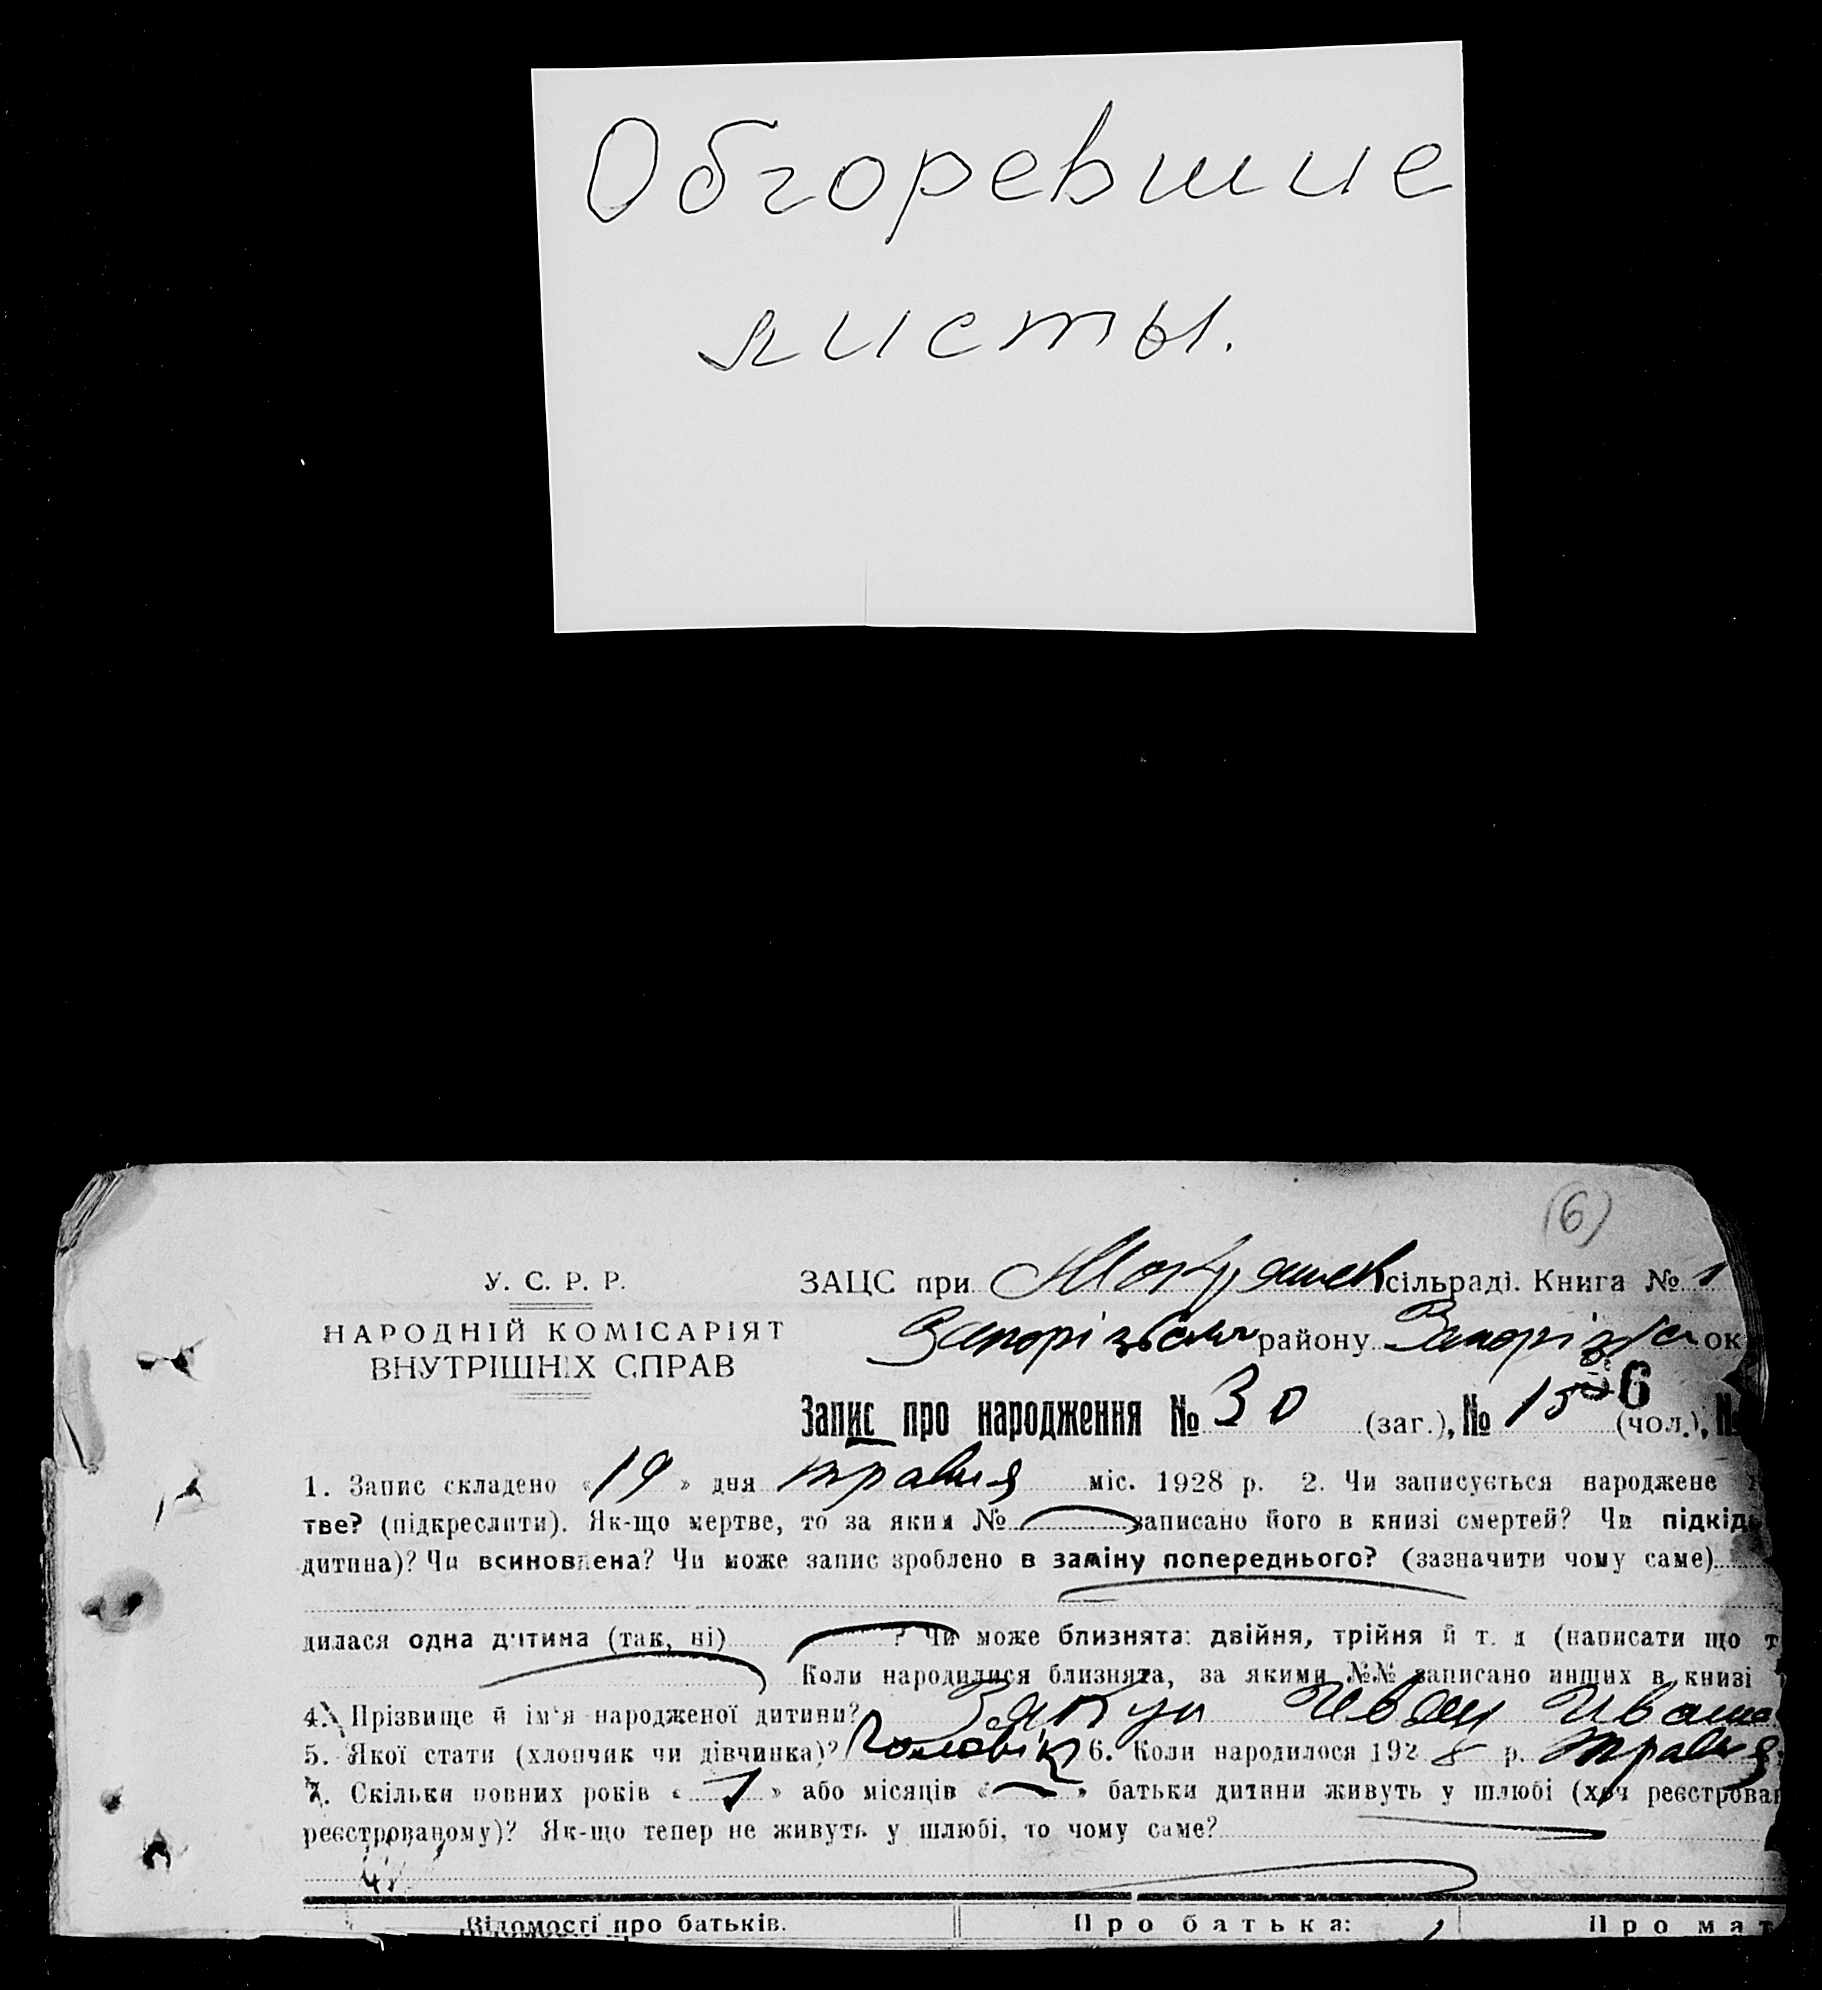 Обгоревшие
листы.
(6)
У. С. Р. Р.
НАРОДНІЙ КОМІСАРІЯТ
ВНУТРІШНІХ СПРАВ
ЗАЦС при сільраді. Книга № 1
району ок
6
Запис про народження № 30 (заг.), № 15 (чол.), №
1. Запис складено «19» дня травня міс. 1928 р. 2. Чи записується народжене
тве? (підкреслити). Як-що мертве, то за яким № записано його в книзі смертей? Чи підкід
дитина)? Чи всиновлена? Чи може запис зроблено в заміну попереднього? (зазначити чому саме)
дилася одна дитина (так, ні) ? Чи може близнята: двійня, трійня й т. д (написати що т
Коли народилися близнята, за якими №№ записано инших в книзі
4. Прізвище й ім'я народженої дитини? Иван
5. Якої стати (хлопчик чи дівчинка)? чоловік 6. Коли народилося 1928 р. травня
7. Скільки повних років «1» або місяців « » батьки дитини живуть у шлюбі (хоч реєстрован
реєстрованому)? Як-що тепер не живуть у шлюбі, то чому саме?
Відомості про батьків. Про батька: Про мат